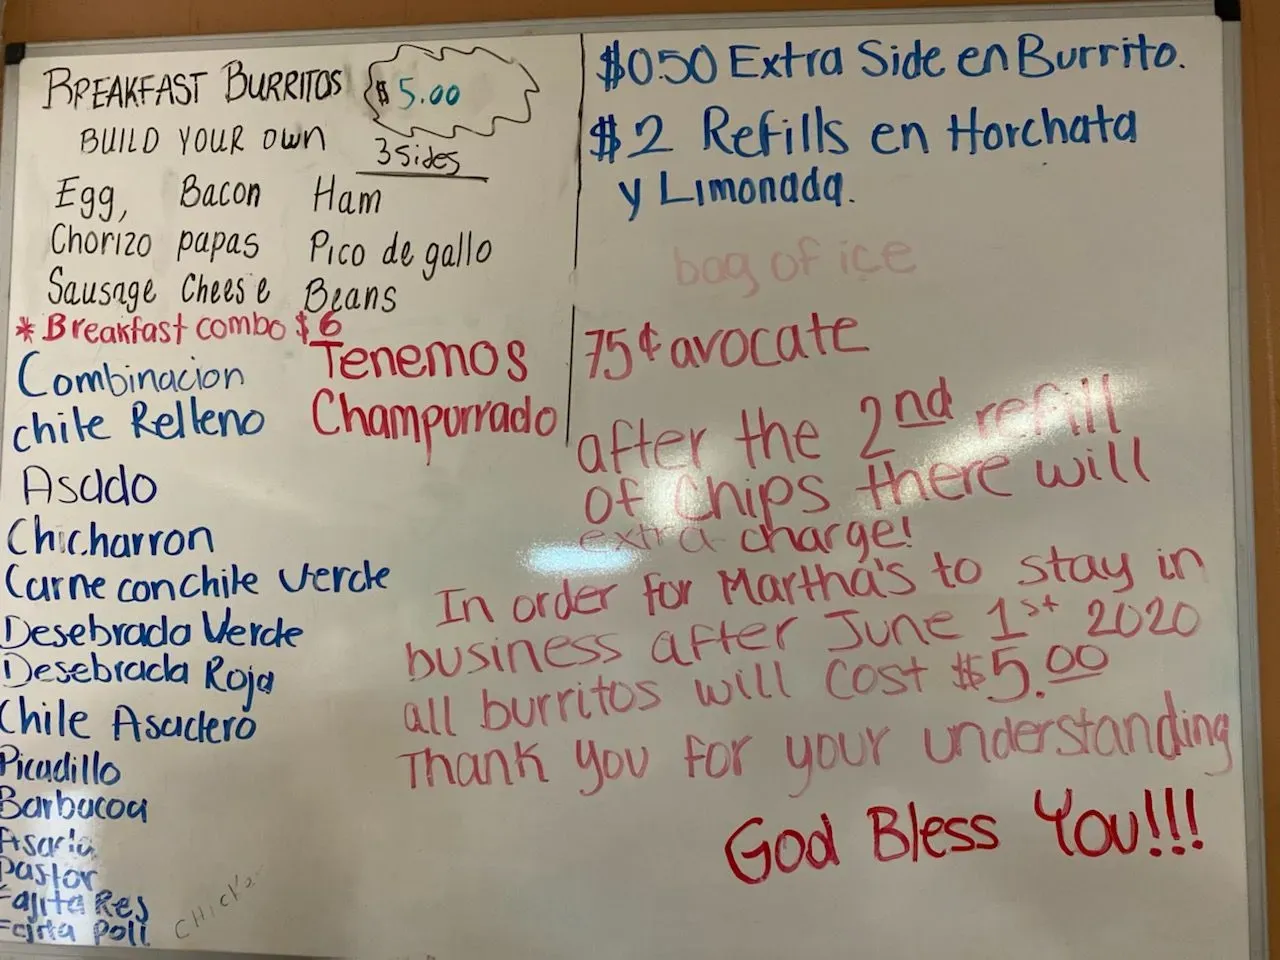 BREAKFAST BURRITOS $5.00
BUILD YOUR OWN 3 Sides
Egg, Bacon Ham
Chorizo papas Pico de gallo
Sausage Cheese Beans
* Breakfast combo $6
Tenemos
Champurrado
Combinacion
chile Relleno
Asado
Chicharron
Carne con chile verde
Desebrada Verde
Desebrada Roja
Chile Asadero
Picadillo
Barbacoa
Asada
Pastor
Fajita Res
Fajita Poll
$0.50 Extra Side en Burrito.
$2 Refills en Horchata
y Limonada.
bag of ice
75¢ avocate
after the 2nd refill
of chips there will
extra charge!
In order for Martha's to stay in
business after June 1st 2020
all burritos will cost $5.00
Thank you for your understanding
God Bless You!!!